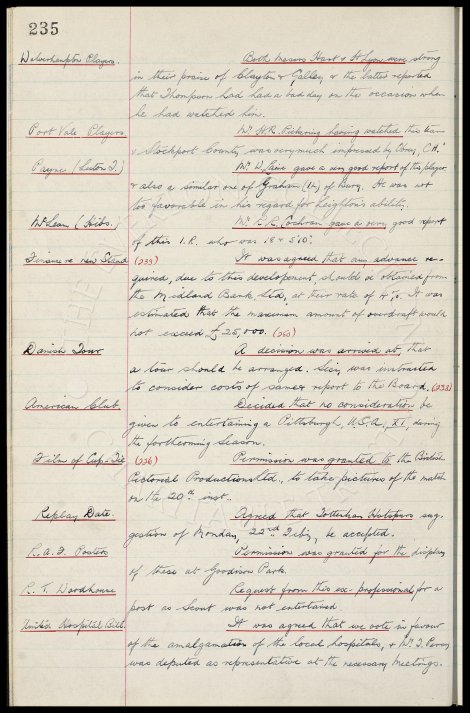 235
Wolverhampton Players. Both Messrs Hart & H Lyon were strong
in their praise of Clayton & Galley, & the latter reported
that Thompson had had a bad day on the occasion when
he had watched him.
Port Vale Players. Mr H.R. Pickering having watched this team
v Stockport County was very much impressed by C.H.
Payne (Luton T.) Mr W. gave a very good report of this player
& also a similar one of Graham of Bury. He was not
too favorable in his regard for Leighton's ability.
McLean (Hibs.) Mr R.R. Cochran gave a very good report
of this I.R. who was 18 & 5'10".
Finance re new Stand (233) It was agreed that an advance re-
quired, due to this development, should be obtained from
the Midland Bank Ltd, at their rate of 4%. It was
estimated that the maximum amount of overdraft would
not exceed £25,000. (260)
Danish Tour A decision was arrived at, that
a tour should be arranged. Secy. was instructed
to consider costs of same & report to the Board. (238)
American Club. Decided that no consideration be
given to entertaining a Pittsburgh, U.S.A., XI, during
the forthcoming season.
Film of Cup-Tie (236) Permission was granted to the British
Pictorial Productions Ltd., to take pictures of the match
on the 20th inst.
Replay Date. Agreed that Tottenham Hotspurs sug-
gestion of Monday, 22nd Feby, be accepted.
R.A.F. Posters Permission was granted for the display
of these at Goodison Park.
R. T. Woodhouse Request from this ex-professional for a
post as Scout was not entertained.
United Hospital Bill. It was agreed that we vote in favour
of the amalgamation of the local hospitals, & Mr.
was deputed as representative at the necessary meetings.